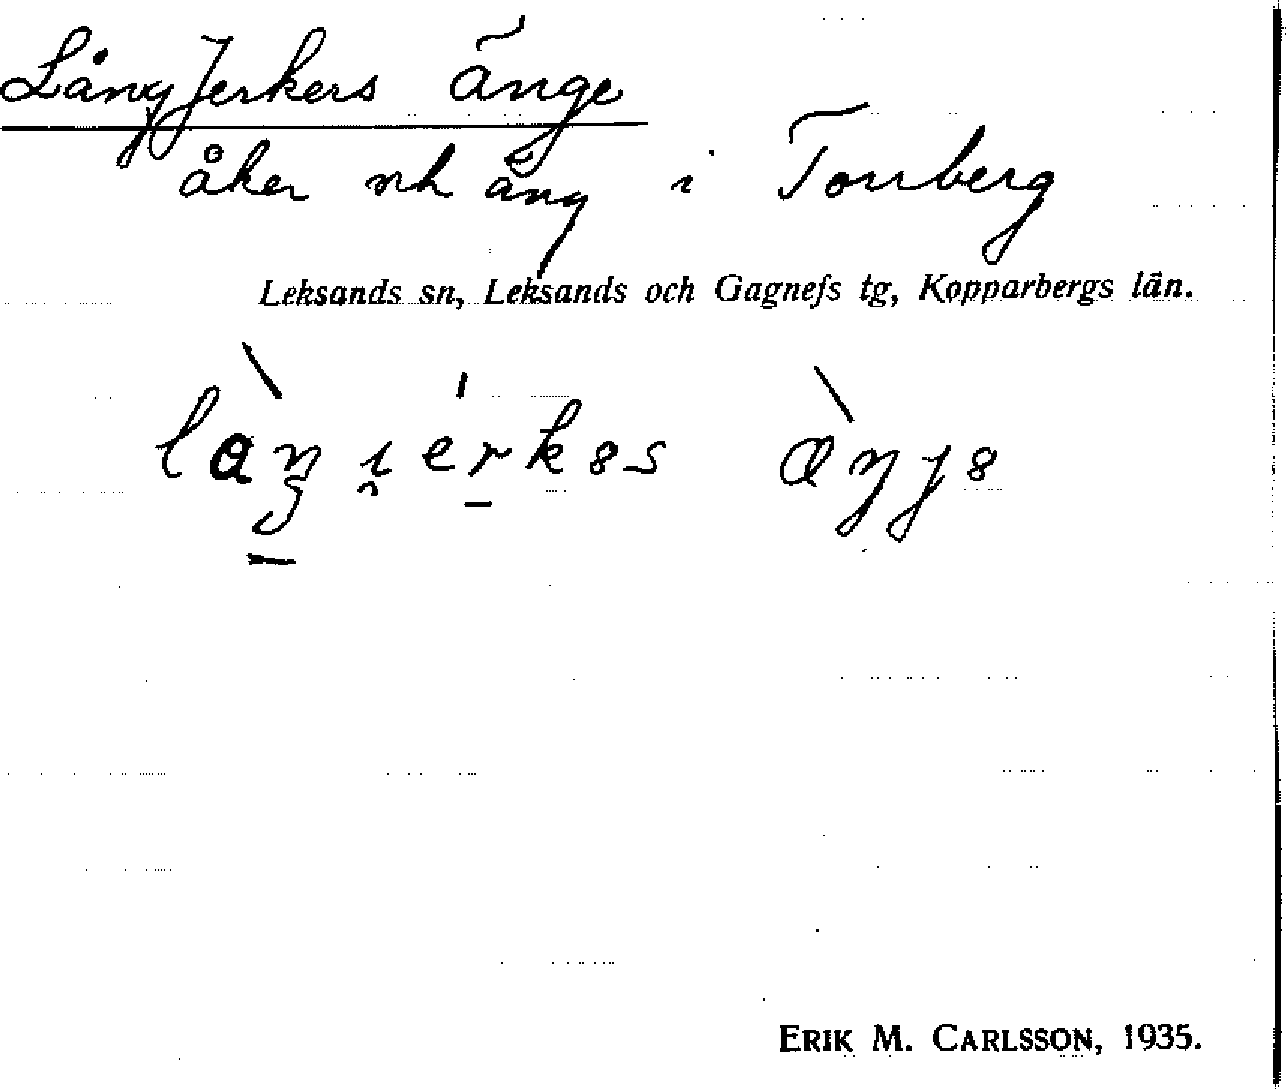 LångJerkers änge
åker och äng i Tonberg
Leksands sn, Leksands och Gagnefs tg, Kopparbergs län.
ERIK M. CARLSSON, 1935.